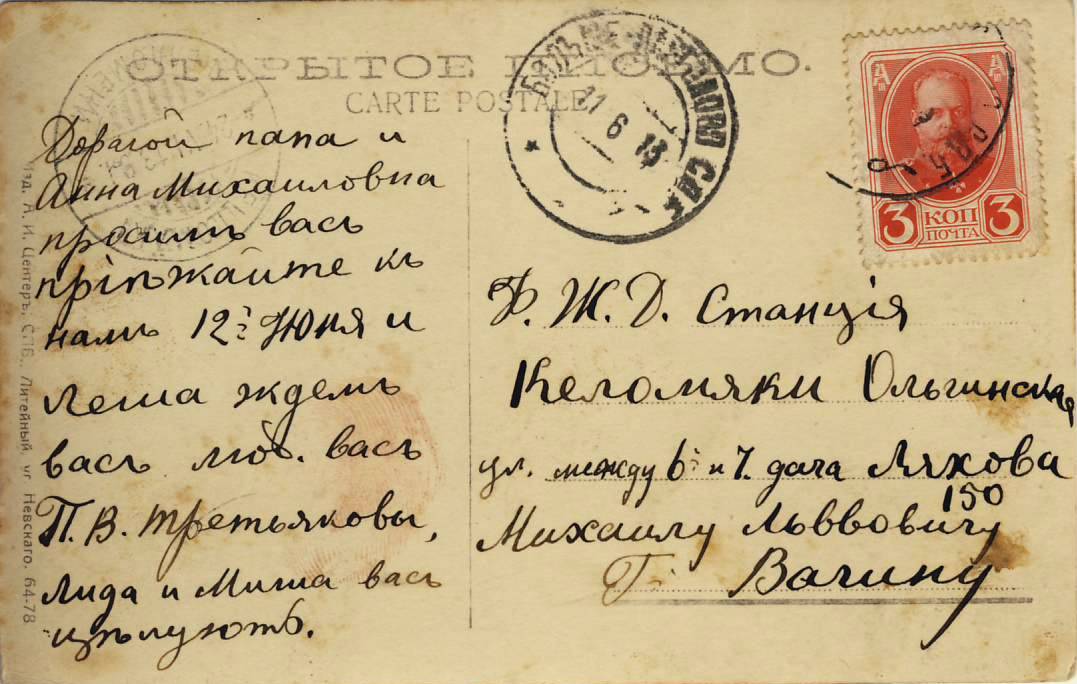 ОТКРЫТОЕ ПИСЬМО.
CARTE POSTALE
11 6 13
3 КОП ПОЧТА 3
Дорогой папа и
Анна Михаиловна
просимъ васъ
пріѣжайте къ
намъ 12го Июня и
Леша ждемъ
васъ люб. васъ
П. В. Третьяковы,
Лида и Миша васъ
цѣлуютъ.
Ф. Ж. Д. Станція
Келомяки Ольгинская
ул. между 6й и 7. дача Ляхова
150
Михаилу Львовичу
Г. Вагину
Изд. А. И. Центеръ, СПБ., Литейный, уг. Невскаго, 64-78